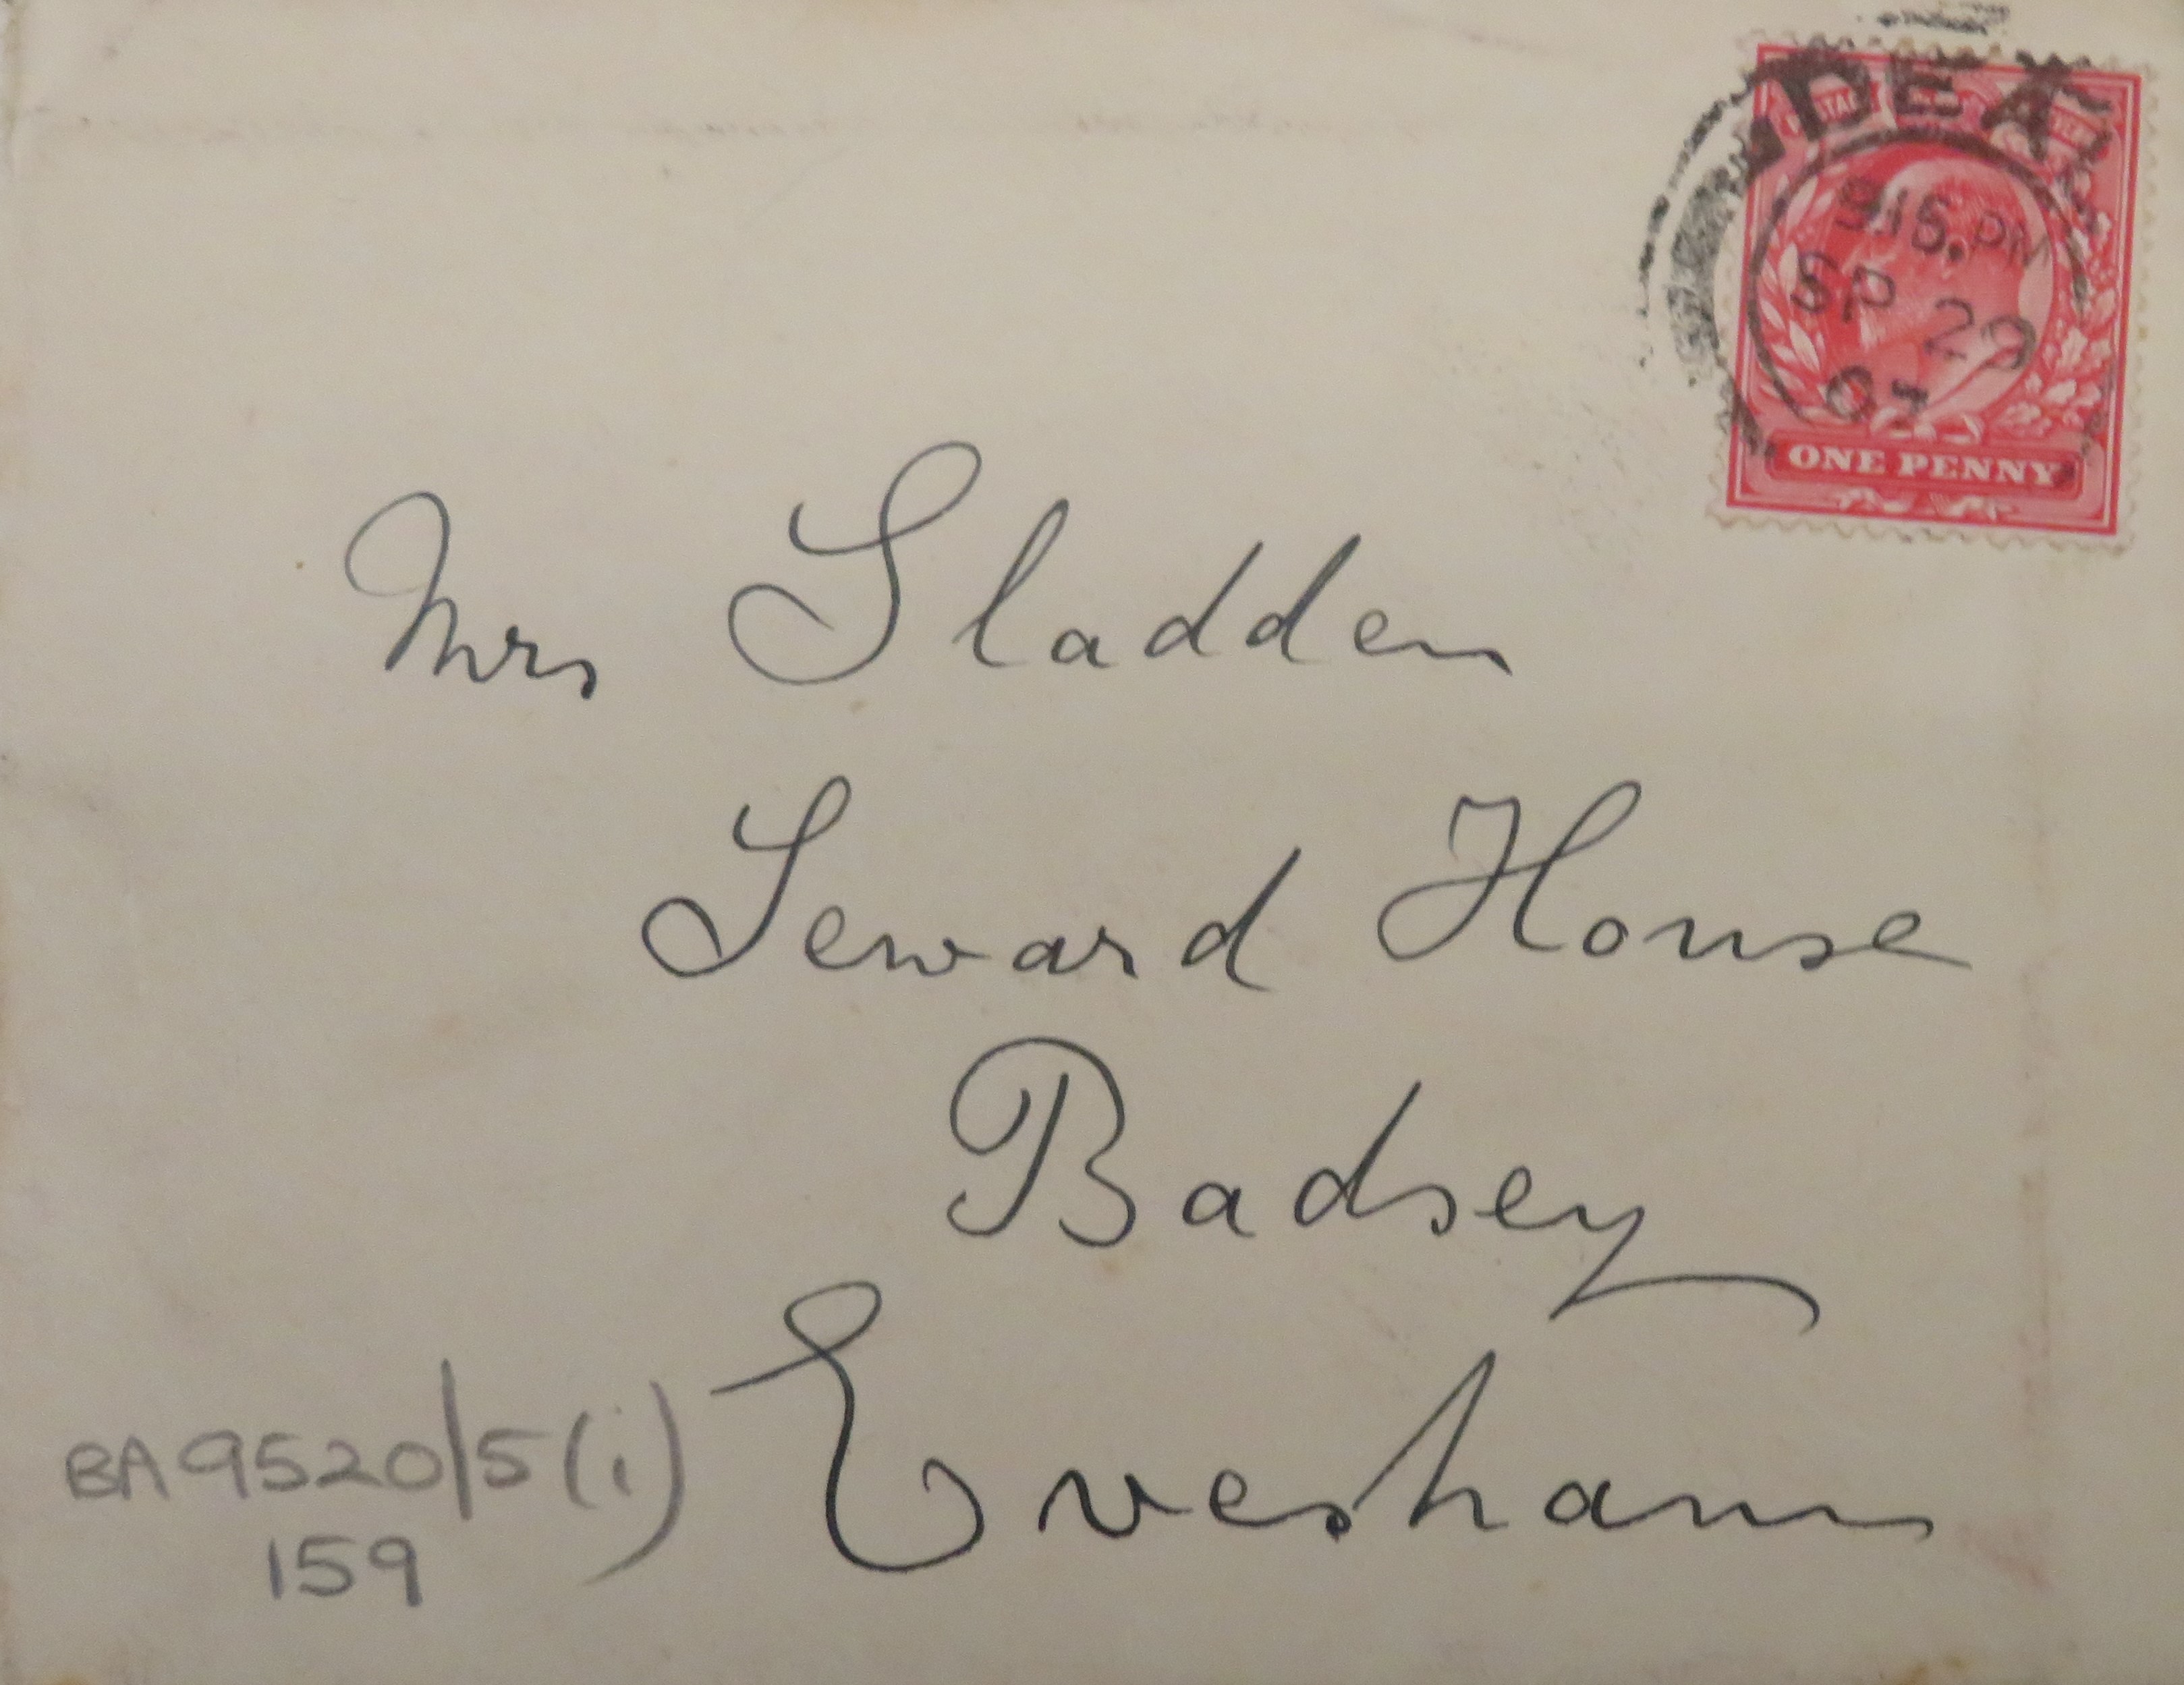 DEA
9.15.PM
SP 29
07
ONE PENNY
Mrs Sladden
Seward House
Badsey
Evesham
BA9520/5(i)
159